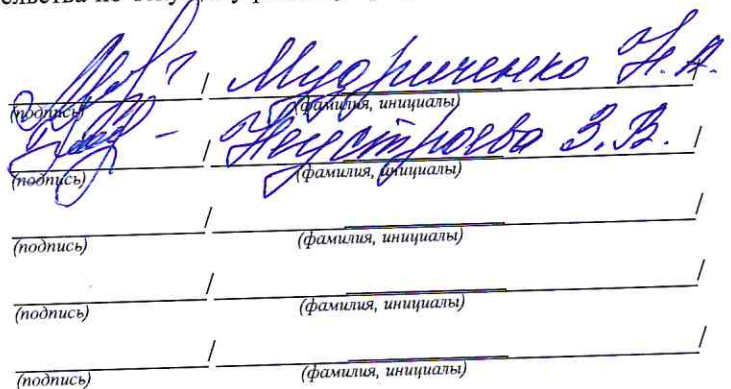 / Мудриченко Н.А.
(подпись) (фамилия, инициалы)
/ Неустроева З.В. /
(подпись) (фамилия, инициалы)
/ /
(подпись) (фамилия, инициалы)
/ /
(подпись) (фамилия, инициалы)
/ /
(подпись) (фамилия, инициалы)